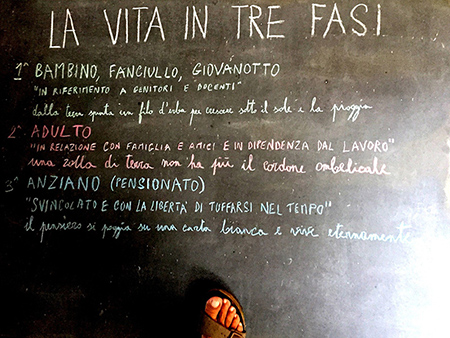 LA VITA IN TRE FASI
1° BAMBINO, FANCIULLO, GIOVANOTTO
"IN RIFERIMENTO A GENITORI E DOCENTI"
dalla terra spunta un filo d'erba per crescere sott il sole e la pioggia
2° ADULTO
"IN RELAZIONE CON FAMIGLIA E AMICI E IN DIPENDENZA DAL LAVORO"
una zolla di terra non ha più il cordone ombelicale
3° ANZIANO (PENSIONATO)
"SVINCOLATO E CON LA LIBERTA' DI TUFFARSI NEL TEMPO"
il pensiero si poggia su una carta bianca e vive eternamente